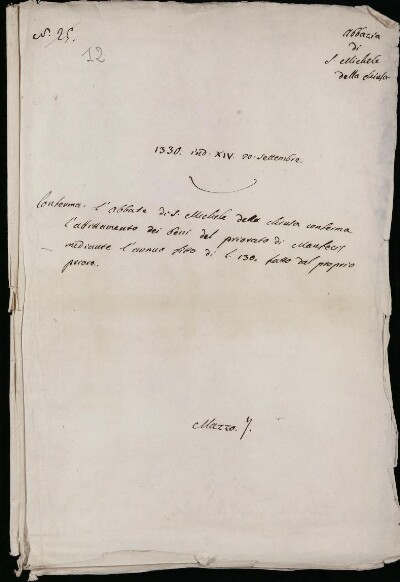 N. 25.
12
Abbazia
di
S. Michele
della Chiusa
1330. ind. XIV. 20. settembre
Conferma. L'Abbate di S. Michele della Chiusa conferma
l'affittamento dei beni del priorato di
mediante l'annuo fitto di L. 130. fatto dal proprio
priore.
Mazzo. 7.